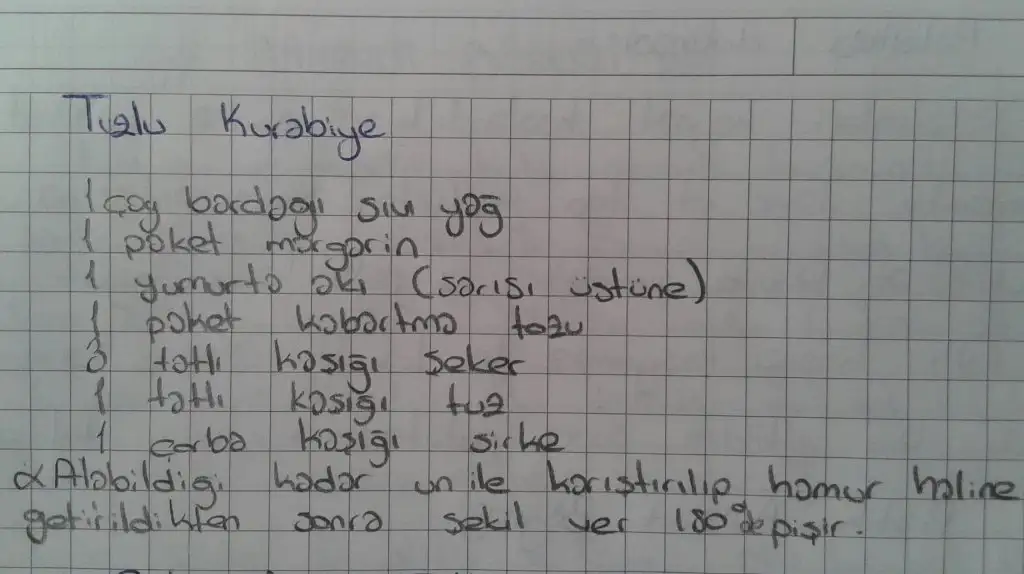 Tuzlu Kurabiye
1 çay bardağı sıvı yağ
1 paket margarin
1 yumurta akı (sarısı üstüne)
1 paket kabartma tozu
3 tatlı kaşığı şeker
1 tatlı kaşığı tuz
1 çorba kaşığı sirke
Alabildiği kadar un ile karıştırılıp hamur haline
getirildikten sonra şekil ver 180° de pişir.